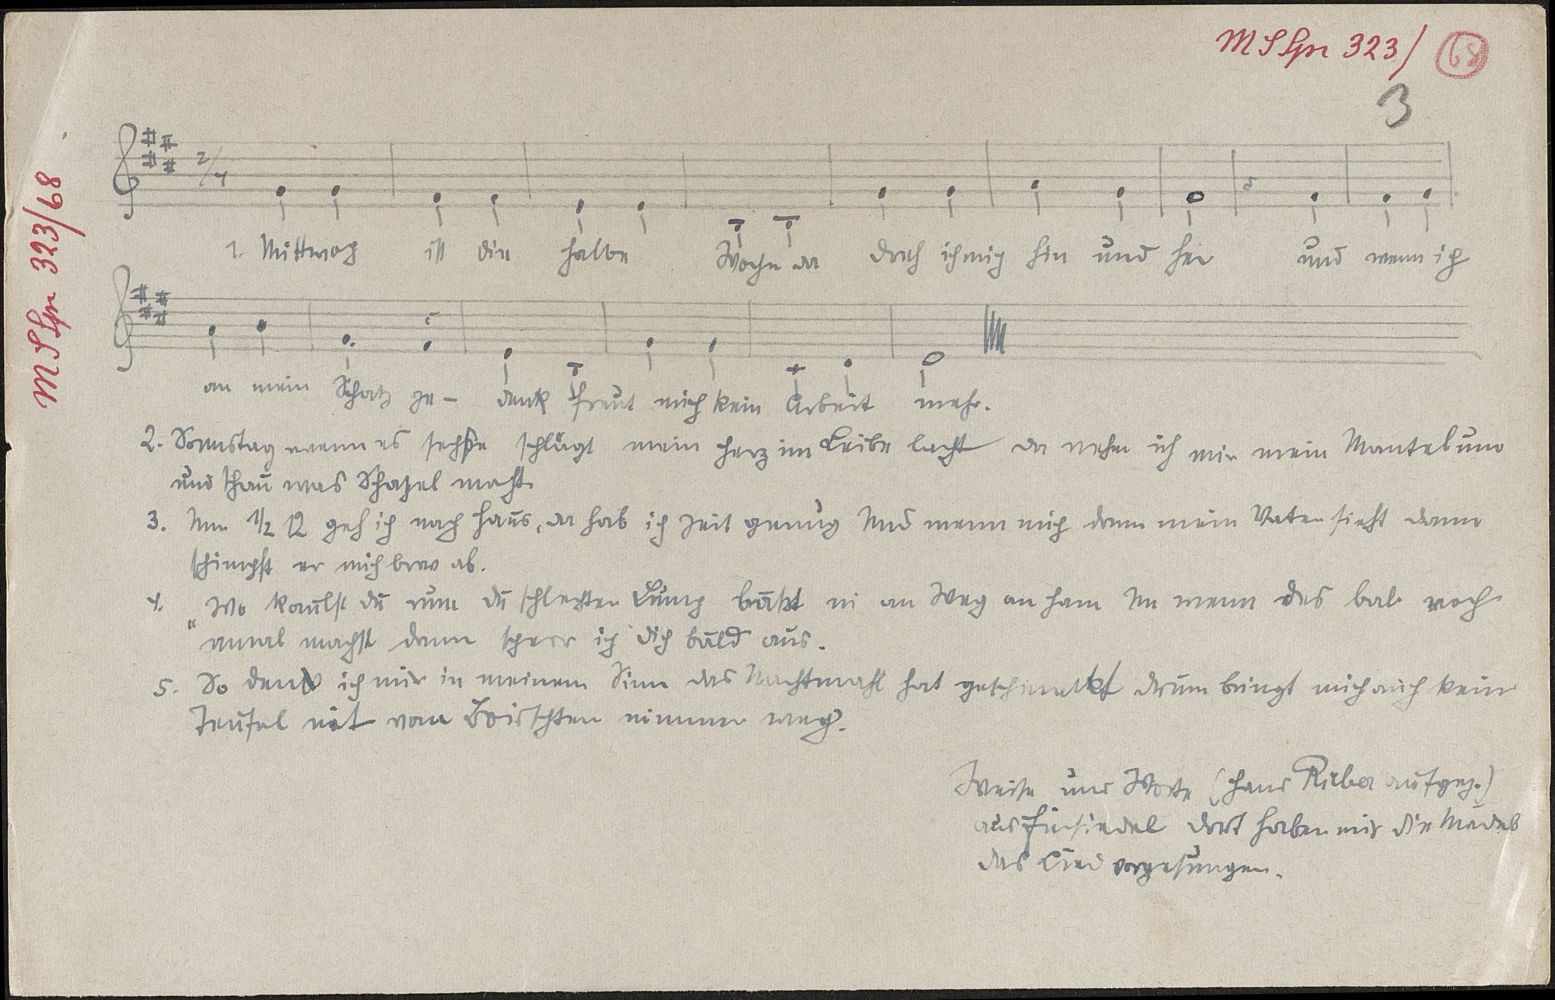 MS Spr 323/ 68
3
MS Spr 323/68
2/4
1. Mittwoch ist die halbe Woche da drah ich mich hin und her und wenn ich
an mein Schatz ge- denk freut mich kein Arbeit mehr.
2. Somstag wenn es sechse schlägt mein Herz im Leibe lacht da nehm ich mir mein Mantel um
und schau was Schatzel macht.
3. Um 1/2 12 geh ich nach Haus, da hab ich Zeit genug Und wenn mich dann mein Vater sieht dann
schimpft er mich brav ab.
4. "Wo du rum du schlechter Lump ni an Weg an ham Un wenn des bal noch
amal machst dann sperr ich dich bald aus.
5. So denk ich mir in meinem Sinn das Nachtmahl hat geschmeckt drum bringt mich auch kein
Teufel nit vom Börschten nimmer weg.
Weise und Worte (Hans aufgez.)
aus Einsiedel dort haben mir die Mädeb
das Lied vorgesungen.